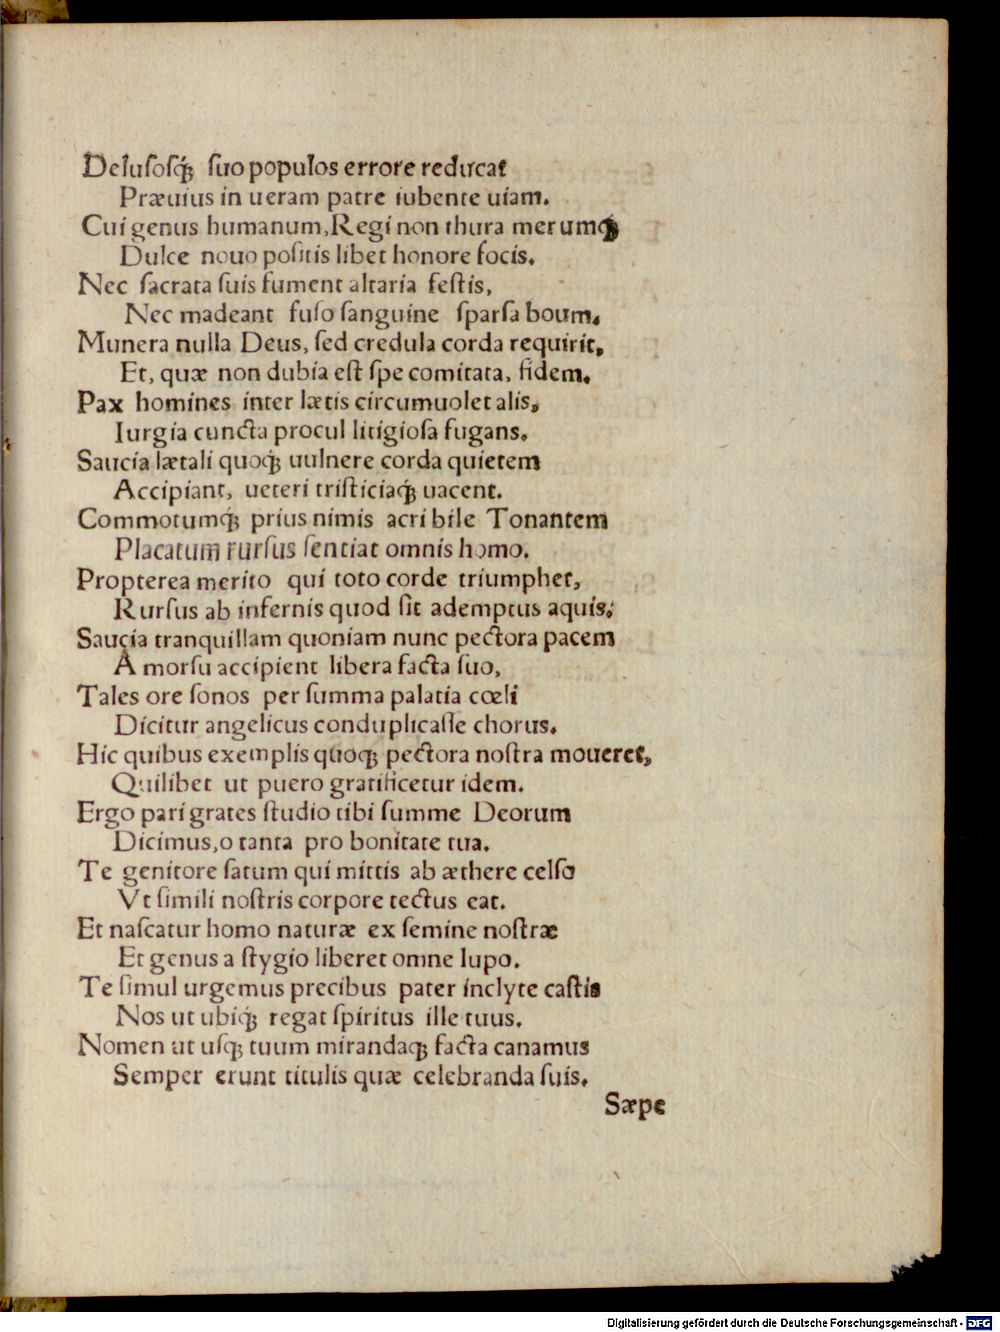 Deluſoſq́ꝫ ſuo populos errore reducat
Præuius in ueram patre iubente uiam.
Cui genus humanum,Regi non thura merumqꝫ
Dulce nouo poſitis libet honore focis.
Nec ſacrata ſuis fument altaria feſtis,
Nec madeant fuſo ſanguine ſparſa boum.
Munera nulla Deus, ſed credula corda requirit,
Et, quæ non dubia eſt ſpe comitata, fidem.
Pax homines inter lætis circumuolet alis,
Iurgia cuncta procul litigioſa fugans.
Saucia lætali quoq́ꝫ uulnere corda quietem
Accipiant, ueteri triſticiaq́ꝫ uacent.
Commotumq́ꝫ prius nimis acri bile Tonantem
Placatum rurſus ſentiat omnis homo.
Propterea merito qui toto corde triumphet,
Rurſus ab infernis quod ſit ademptus aquis,
Saucia tranquillam quoniam nunc pectora pacem
A morſu accipient libera facta ſuo,
Tales ore ſonos per ſumma palatia cœli
Dicitur angelicus conduplicaſſe chorus.
Hic quibus exemplis quoqꝫ pectora noſtra moueret,
Quilibet ut puero gratificetur idem.
Ergo pari grates ſtudio tibi ſumme Deorum
Dicimus,o tanta pro bonitate tua.
Te genitore ſatum qui mittis ab æthere celſo
Vt simili noſtris corpore tectus eat.
Et naſcatur homo naturæ ex ſemine noſtræ
Et genus a ſtygio liberet omne lupo.
Te ſimul urgemus precibus pater inclyte caſtis
Nos ut ubiq́ꝫ regat ſpiritus ille tuus.
Nomen ut uſqꝫ tuum mirandaqꝫ facta canamus
Semper erunt titulis quæ celebranda ſuis.
Sæpe
Digitalisierung gefördert durch die Deutsche Forschungsgemeinschaft - DFG